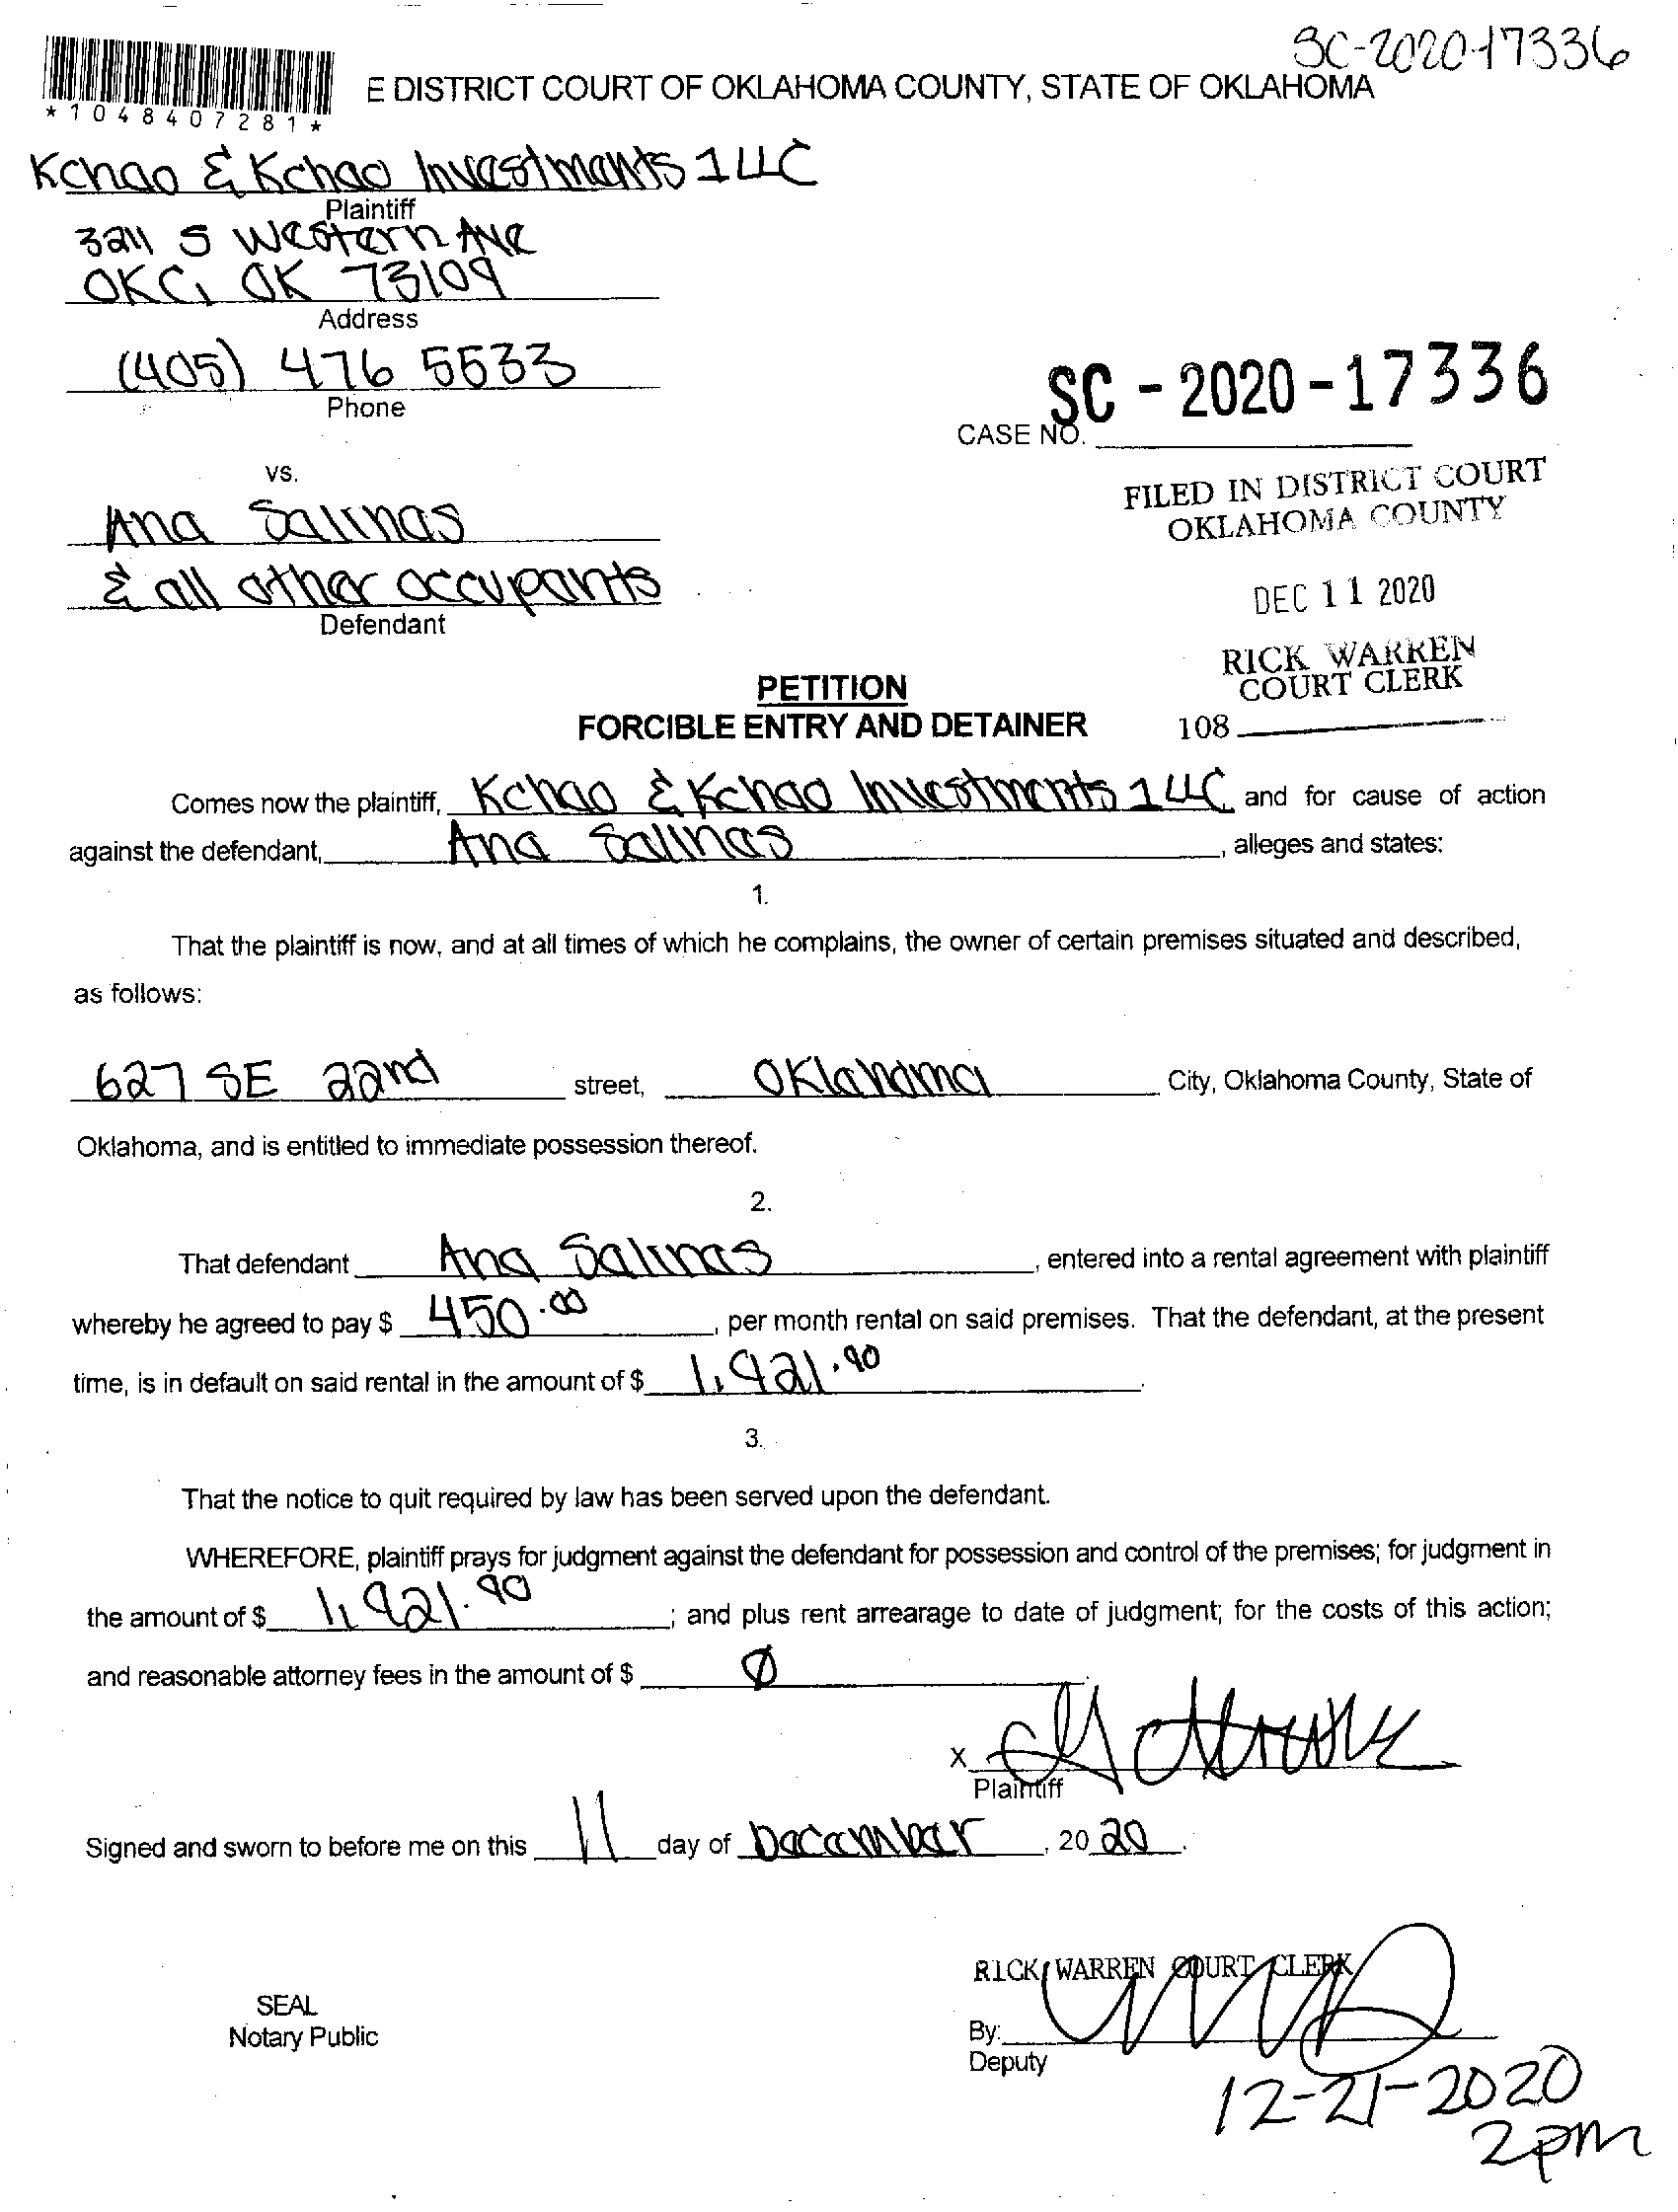 SC-2020-17336
*1048407281*
E DISTRICT COURT OF OKLAHOMA COUNTY, STATE OF OKLAHOMA
Kchao & Kchao Investments 1 LLC
Plaintiff
3211 S Western Ave
OKC, OK 73109
Address
(405) 476 5533
Phone
SC-2020-17336
CASE NO.
vs.
FILED IN DISTRICT COURT
OKLAHOMA COUNTY
Ana Salinas
& all other occupants
Defendant
DEC 11 2020
RICK WARREN
COURT CLERK
108
PETITION
FORCIBLE ENTRY AND DETAINER
Comes now the plaintiff, Kchao & Kchao Investments 1 LLC and for cause of action
against the defendant, Ana Salinas, alleges and states:
1.
That the plaintiff is now, and at all times of which he complains, the owner of certain premises situated and described,
as follows:
627 SE 22nd street, Oklahoma City, Oklahoma County, State of
Oklahoma, and is entitled to immediate possession thereof.
2.
That defendant Ana Salinas, entered into a rental agreement with plaintiff
whereby he agreed to pay $ 450.00, per month rental on said premises. That the defendant, at the present
time, is in default on said rental in the amount of $ 1,921.90.
3.
That the notice to quit required by law has been served upon the defendant.
WHEREFORE, plaintiff prays for judgment against the defendant for possession and control of the premises; for judgment in
the amount of $ 1,921.90; and plus rent arrearage to date of judgment; for the costs of this action;
and reasonable attorney fees in the amount of $ Ø.
X
Plaintiff
Signed and sworn to before me on this 11 day of December, 2020.
RICK WARREN COURT CLERK
SEAL
Notary Public
By:
Deputy
12-21-2020
2pm